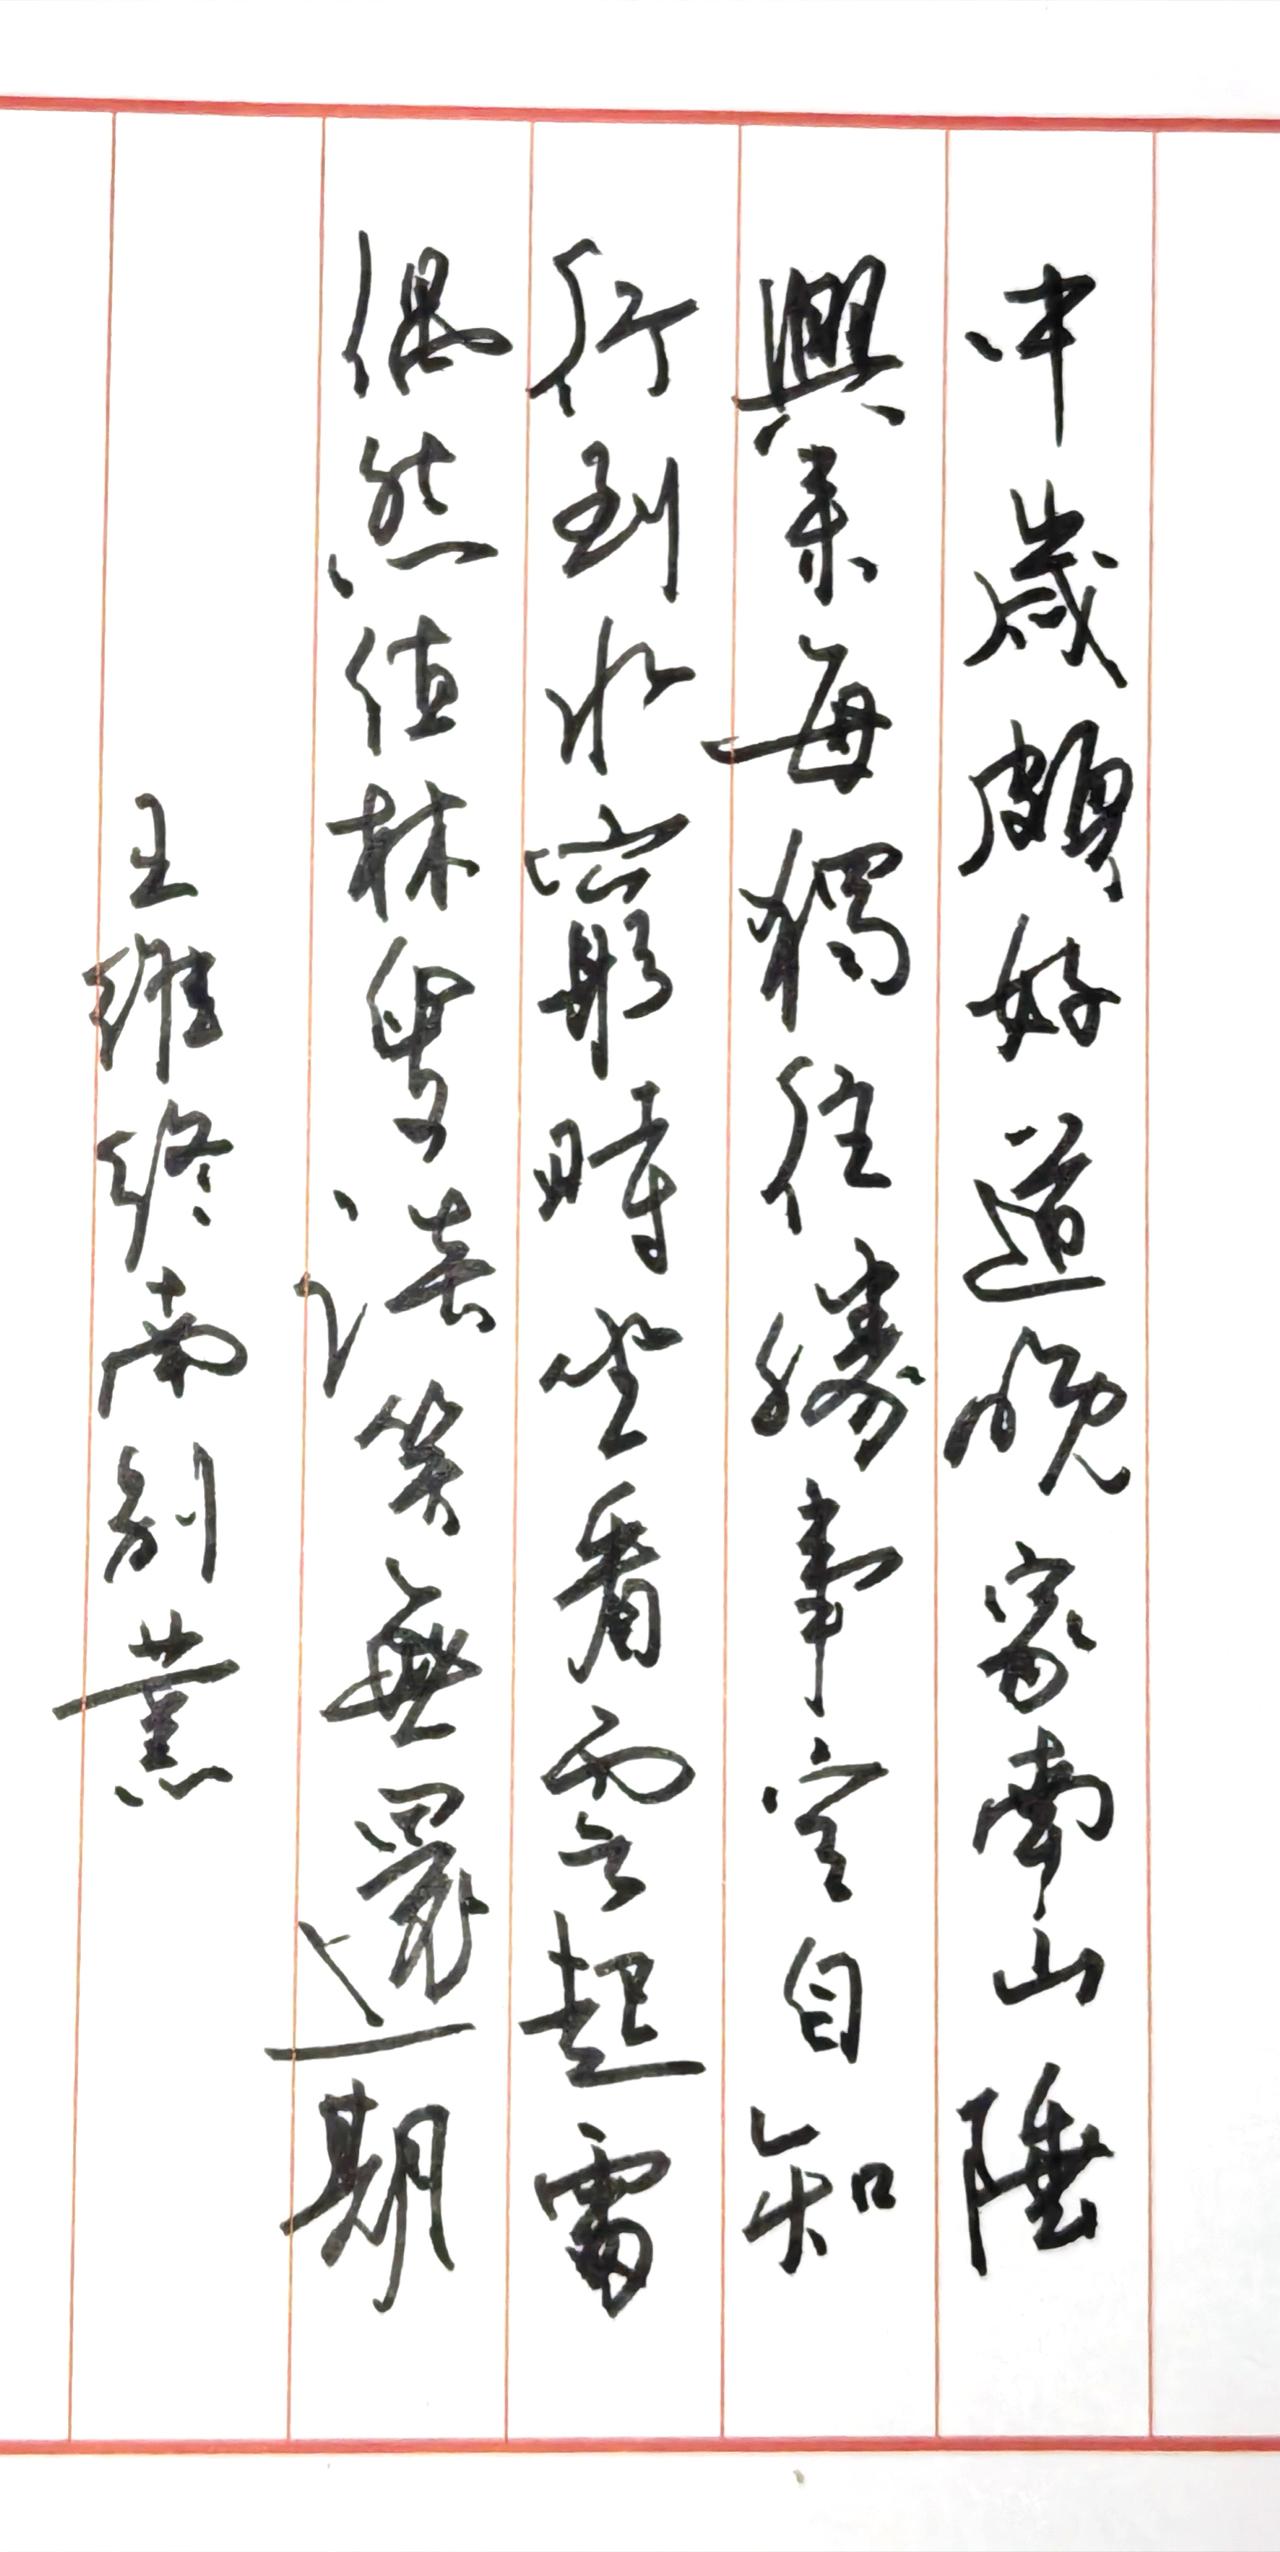 中歲頗好道晚家南山陲
興來每獨往勝事空自知
行到水窮時坐看雲起處
偶然值林叟談笑無還期
王維終南別業